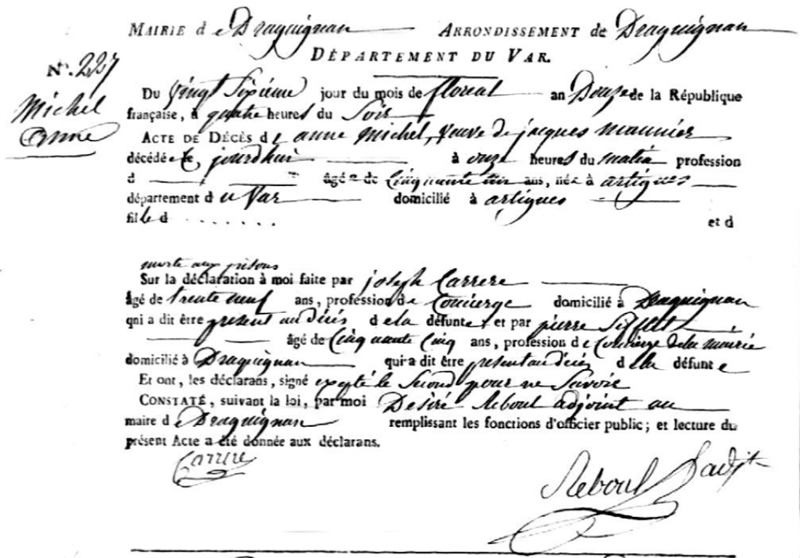 MAIRIE de Draguignan ARRONDISSEMENT de Draguignan
DÉPARTEMENT DU VAR.
N°. 227
Michel
anne
Du vingt Sixieme jour du mois de floreal an Douze de la République
française, à quatre heures du Soir
ACTE DE DÉCÈS de anne Michel, veuve de jacques maunier
décédée ce jourdhui à onze heures du matin profession
d âgée de Cinquante six ans, née à artigues
département du Var domicilié à artigues
fille d . . . . . . . et d
morte aux prisons
Sur la déclaration à moi faite par joseph Carrere
âgé de trente neuf ans, profession de Concierge domicilié à Draguignan
qui a dit être present au décés de la défunte et par pierre
âgé de Cinquante Cinq ans, profession de Concierge de la mairie
domicilié à Draguignan qui a dit être present au décés de la défunte
Et ont, les déclarans, signé excepté le Second pour ne Savoir
CONSTATÉ, suivant la loi, par moi Desiré Reboul adjoint au
maire de Draguignan remplissant les fonctions d'officier public; et lecture du
présent Acte a été donnée aux déclarans.
Carrere
Reboul D adjt